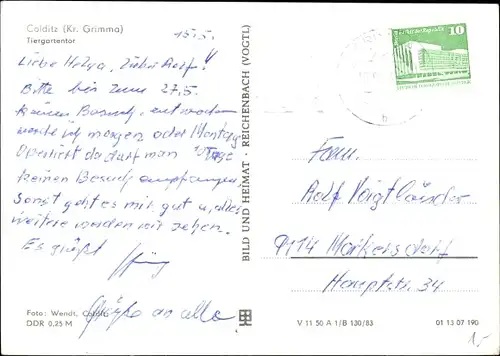 Colditz (Kr. Grimma)
Tiergartentor
15.5.
Liebe Helga, Lieber Rolf!
Bitte bis zum 27.5.
keinen Besuch, entweder
werde ich morgen oder Montag
da darf man 10 Tage
keinen Besuch empfangen.
Sonst geht es mir gut u. alles
weitere werden wir sehen.
Es grüßt
Grüße an alle
Foto: Wendt, Colditz
DDR 0,25 M
BILD UND HEIMAT · REICHENBACH (VOGTL)
10
b
Fam.
Rolf Voigtländer
9114 Markersdorf
Hauptstr. 34
V 11 50 A 1/B 130/83
01 13 07 190